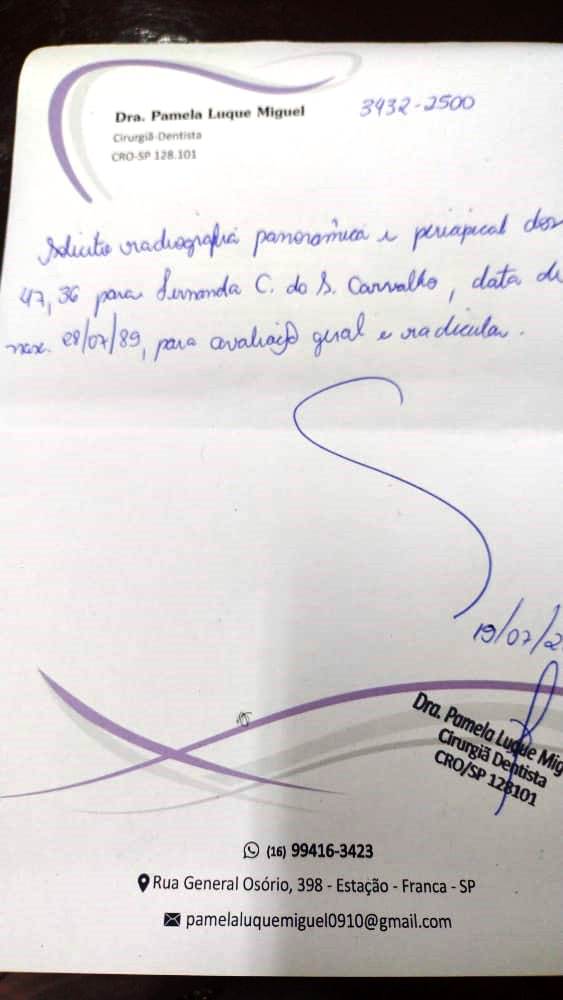 Dra. Pamela Luque Miguel
3432-2500
Cirurgiã-Dentista
CRO-SP 128.101
Solicito radiografia panorâmica e periapical dos
47, 36 para Fernanda C. da S. Carvalho, data de
nasc. 28/07/89, para avaliação geral e radicular.
19/07/2
Dra. Pamela Luque Mig
Cirurgiã Dentista
CRO/SP 128101
(16) 99416-3423
Rua General Osório, 398 - Estação - Franca - SP
pamelaluquemiguel0910@gmail.com